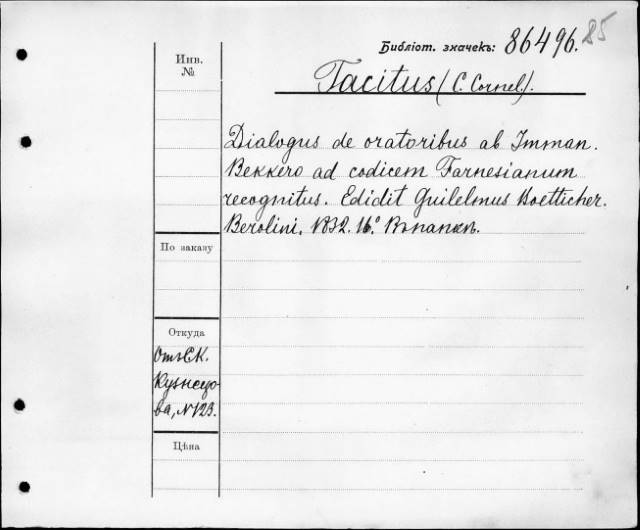 Библіот. значекъ: 86496. 85
Инв.
№
Tacitus (C. Cornel.).
Dialogus de oratoribus ab Imman.
Bekkero ad codicem Farnesianum
recognitus. Edidit Guilelmus Boetticher.
Berolini, 1832. 16°. Въ папкѣ.
По заказу
Откуда
Отъ С.К.
Кузнецо-
ва, № 123.
Цѣна